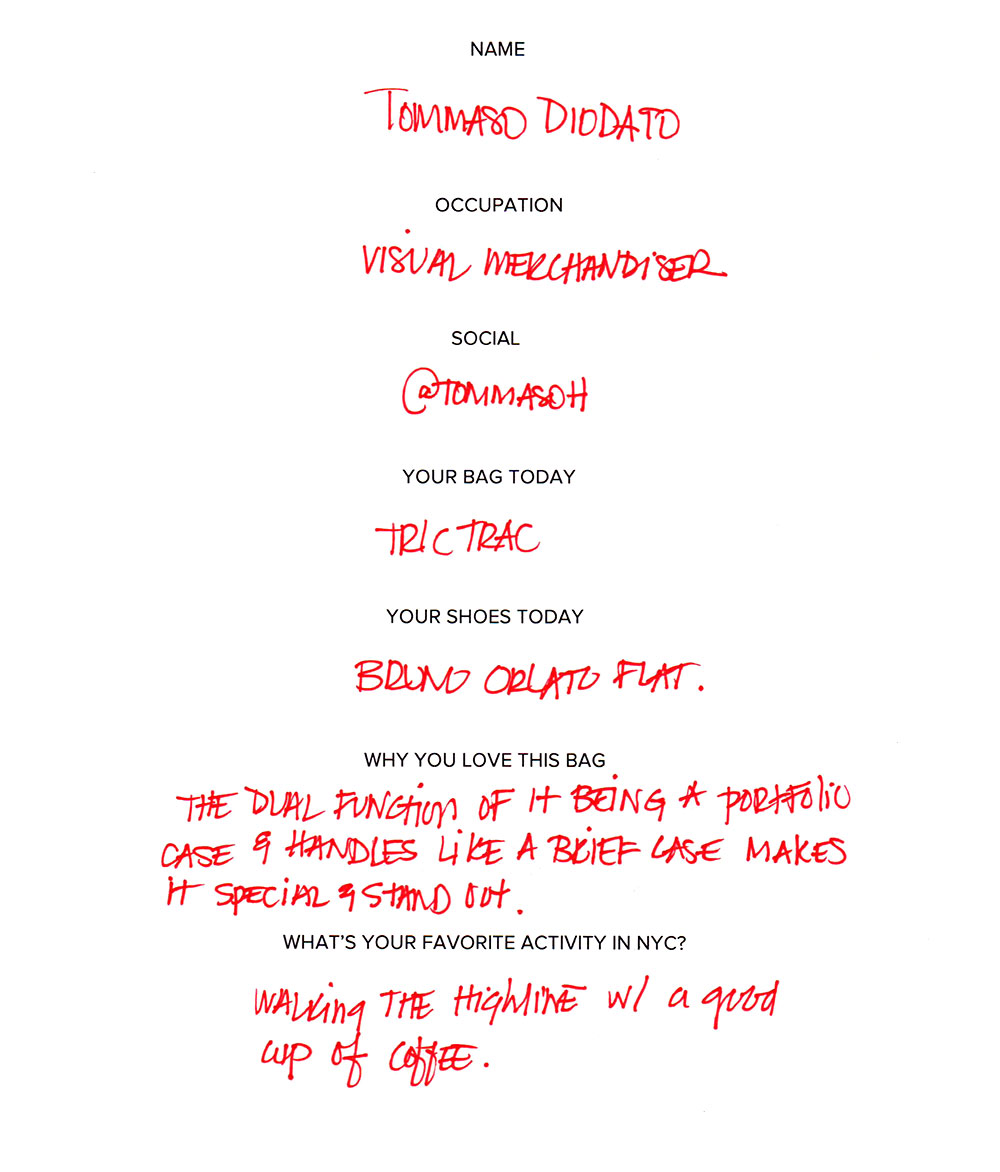 NAME
TOMMASO DIODATO
OCCUPATION
VISUAL MERCHANDISER
SOCIAL
@TOMMASOH
YOUR BAG TODAY
TRIC TRAC
YOUR SHOES TODAY
BRUNO ORLATO FLAT.
WHY YOU LOVE THIS BAG
THE DUAL FUNCTION OF IT BEING A PORTFOLIO
CASE & HANDLES LIKE A BRIEF CASE MAKES
IT SPECIAL & STAND OUT.
WHAT'S YOUR FAVORITE ACTIVITY IN NYC?
WALKING THE HIGHLINE w/ a good
cup of coffee.